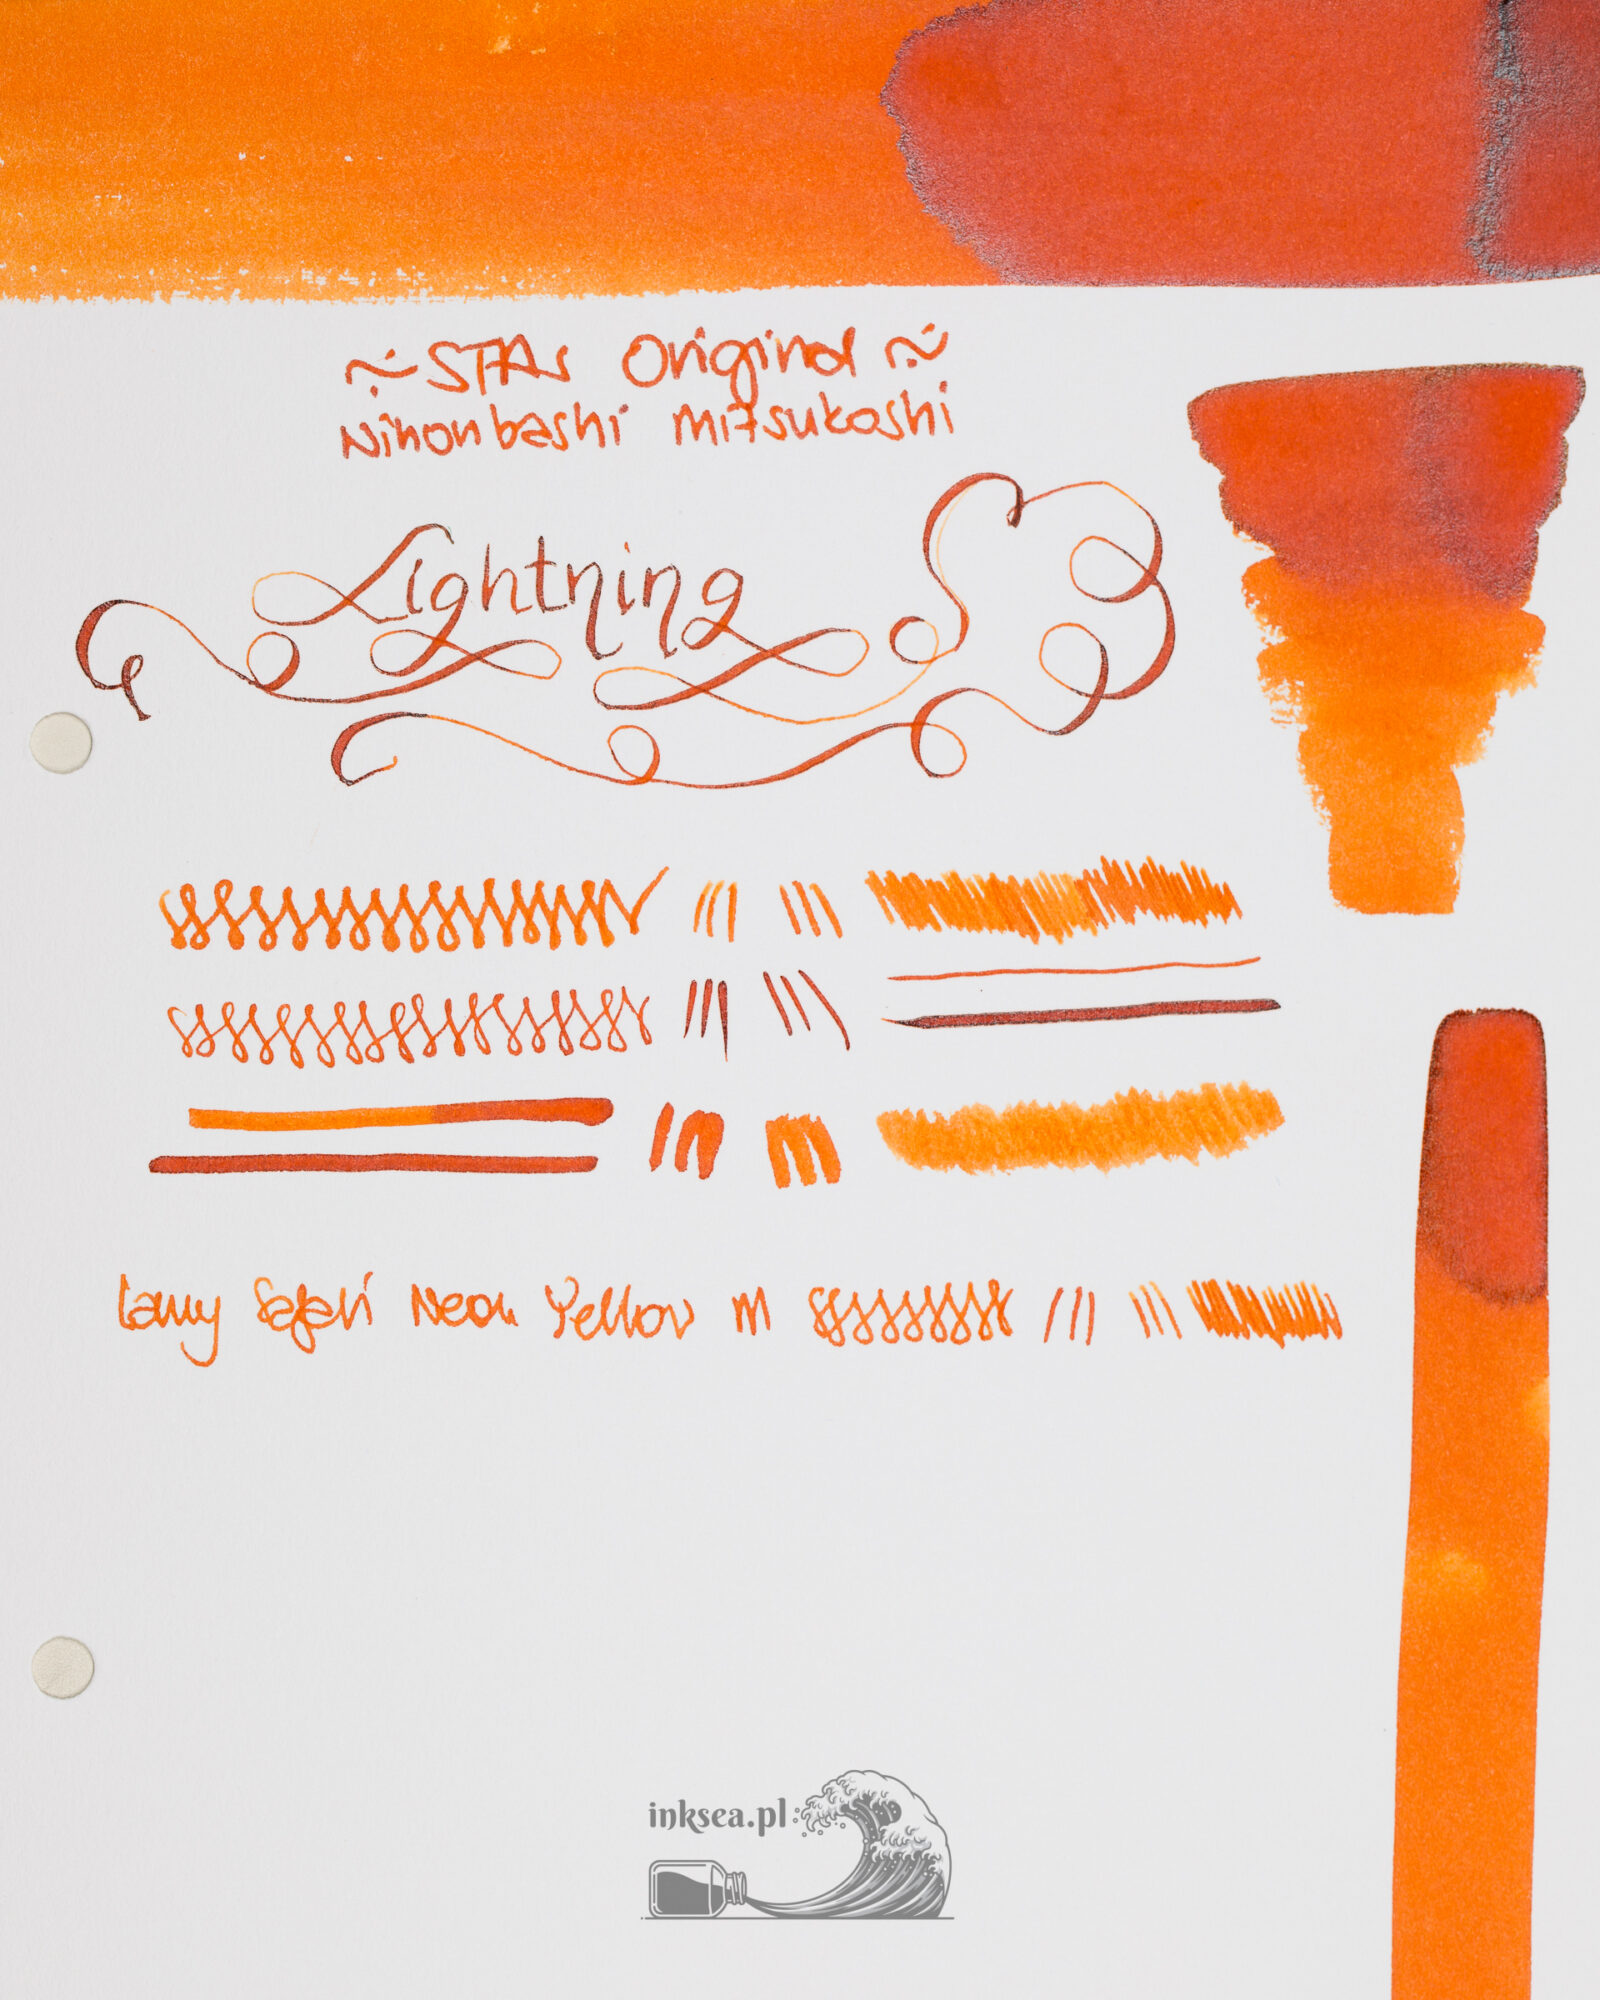 ~ STAr Original ~
Nihonbashi Mitsukoshi
Lightning
Lamy Safari Neon Yellow M
inksea.pl